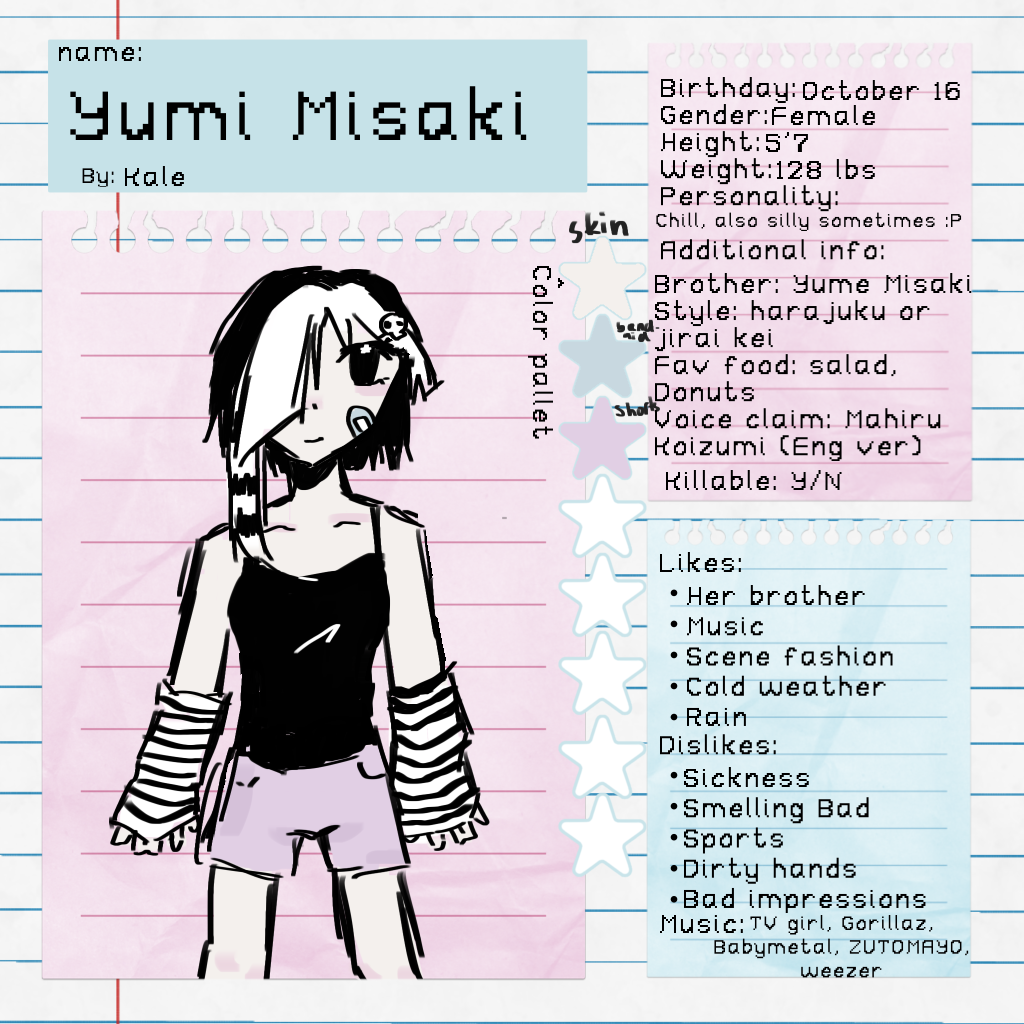 name:
Yumi Misaki
By: Kale
skin
band aid
shorts
Color pallet
Birthday: October 16
Gender: Female
Height: 5'7
Weight: 128 lbs
Personality:
Chill, also silly sometimes :P
Additional info:
Brother: Yume Misaki
Style: harajuku or
jirai kei
Fav food: salad,
Donuts
Voice claim: Mahiru
Koizumi (Eng ver)
Killable: Y/N
Likes:
• Her brother
• Music
• Scene fashion
• Cold weather
• Rain
Dislikes:
• Sickness
• Smelling Bad
• Sports
• Dirty hands
• Bad impressions
Music: TV girl, Gorillaz,
Babymetal, ZUTOMAYO,
weezer